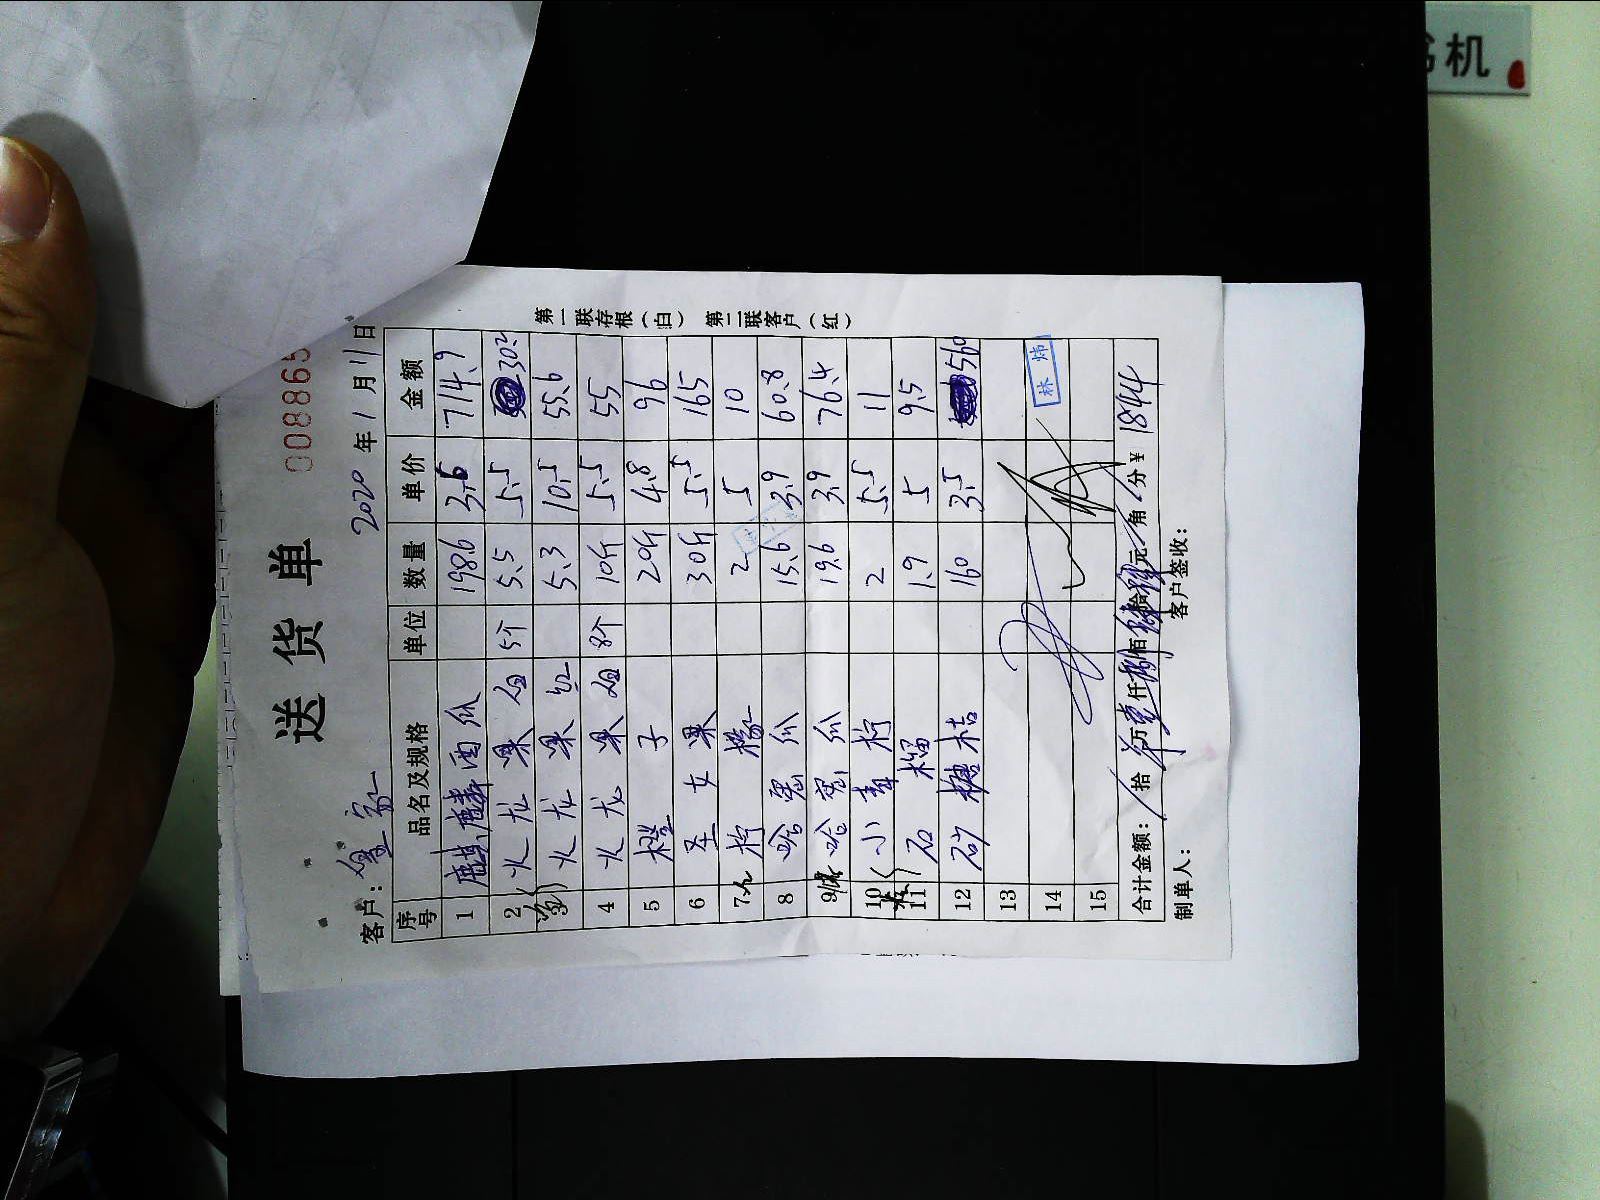 书机
送货单
008865
客户：
2020年1月11日
序号 品名及规格 单位 数量 单价 金额
1 麒麟西瓜 198.6 3.6 714.9
2 火龙果白 5个 5.5 5.5 30.2
3 火龙果红 5.3 10.5 55.6
4 火龙果白 8个 10斤 5.5 55
5 橙子 20斤 4.8 96
6 圣女果 30斤 5.5 165
7 柠檬 2 5 10
8 哈密瓜 15.6 3.9 60.8
9 哈密瓜 19.6 3.9 76.4
10 小青柠 2 5.5 11
11 石榴 1.9 5 9.5
12 砂糖桔 160 3.5 560
13
14
15
林炜
合计金额： 拾 万壹仟捌佰肆拾肆元 角 分￥1844
制单人： 客户签收：
第一联存根（白） 第二联客户（红）